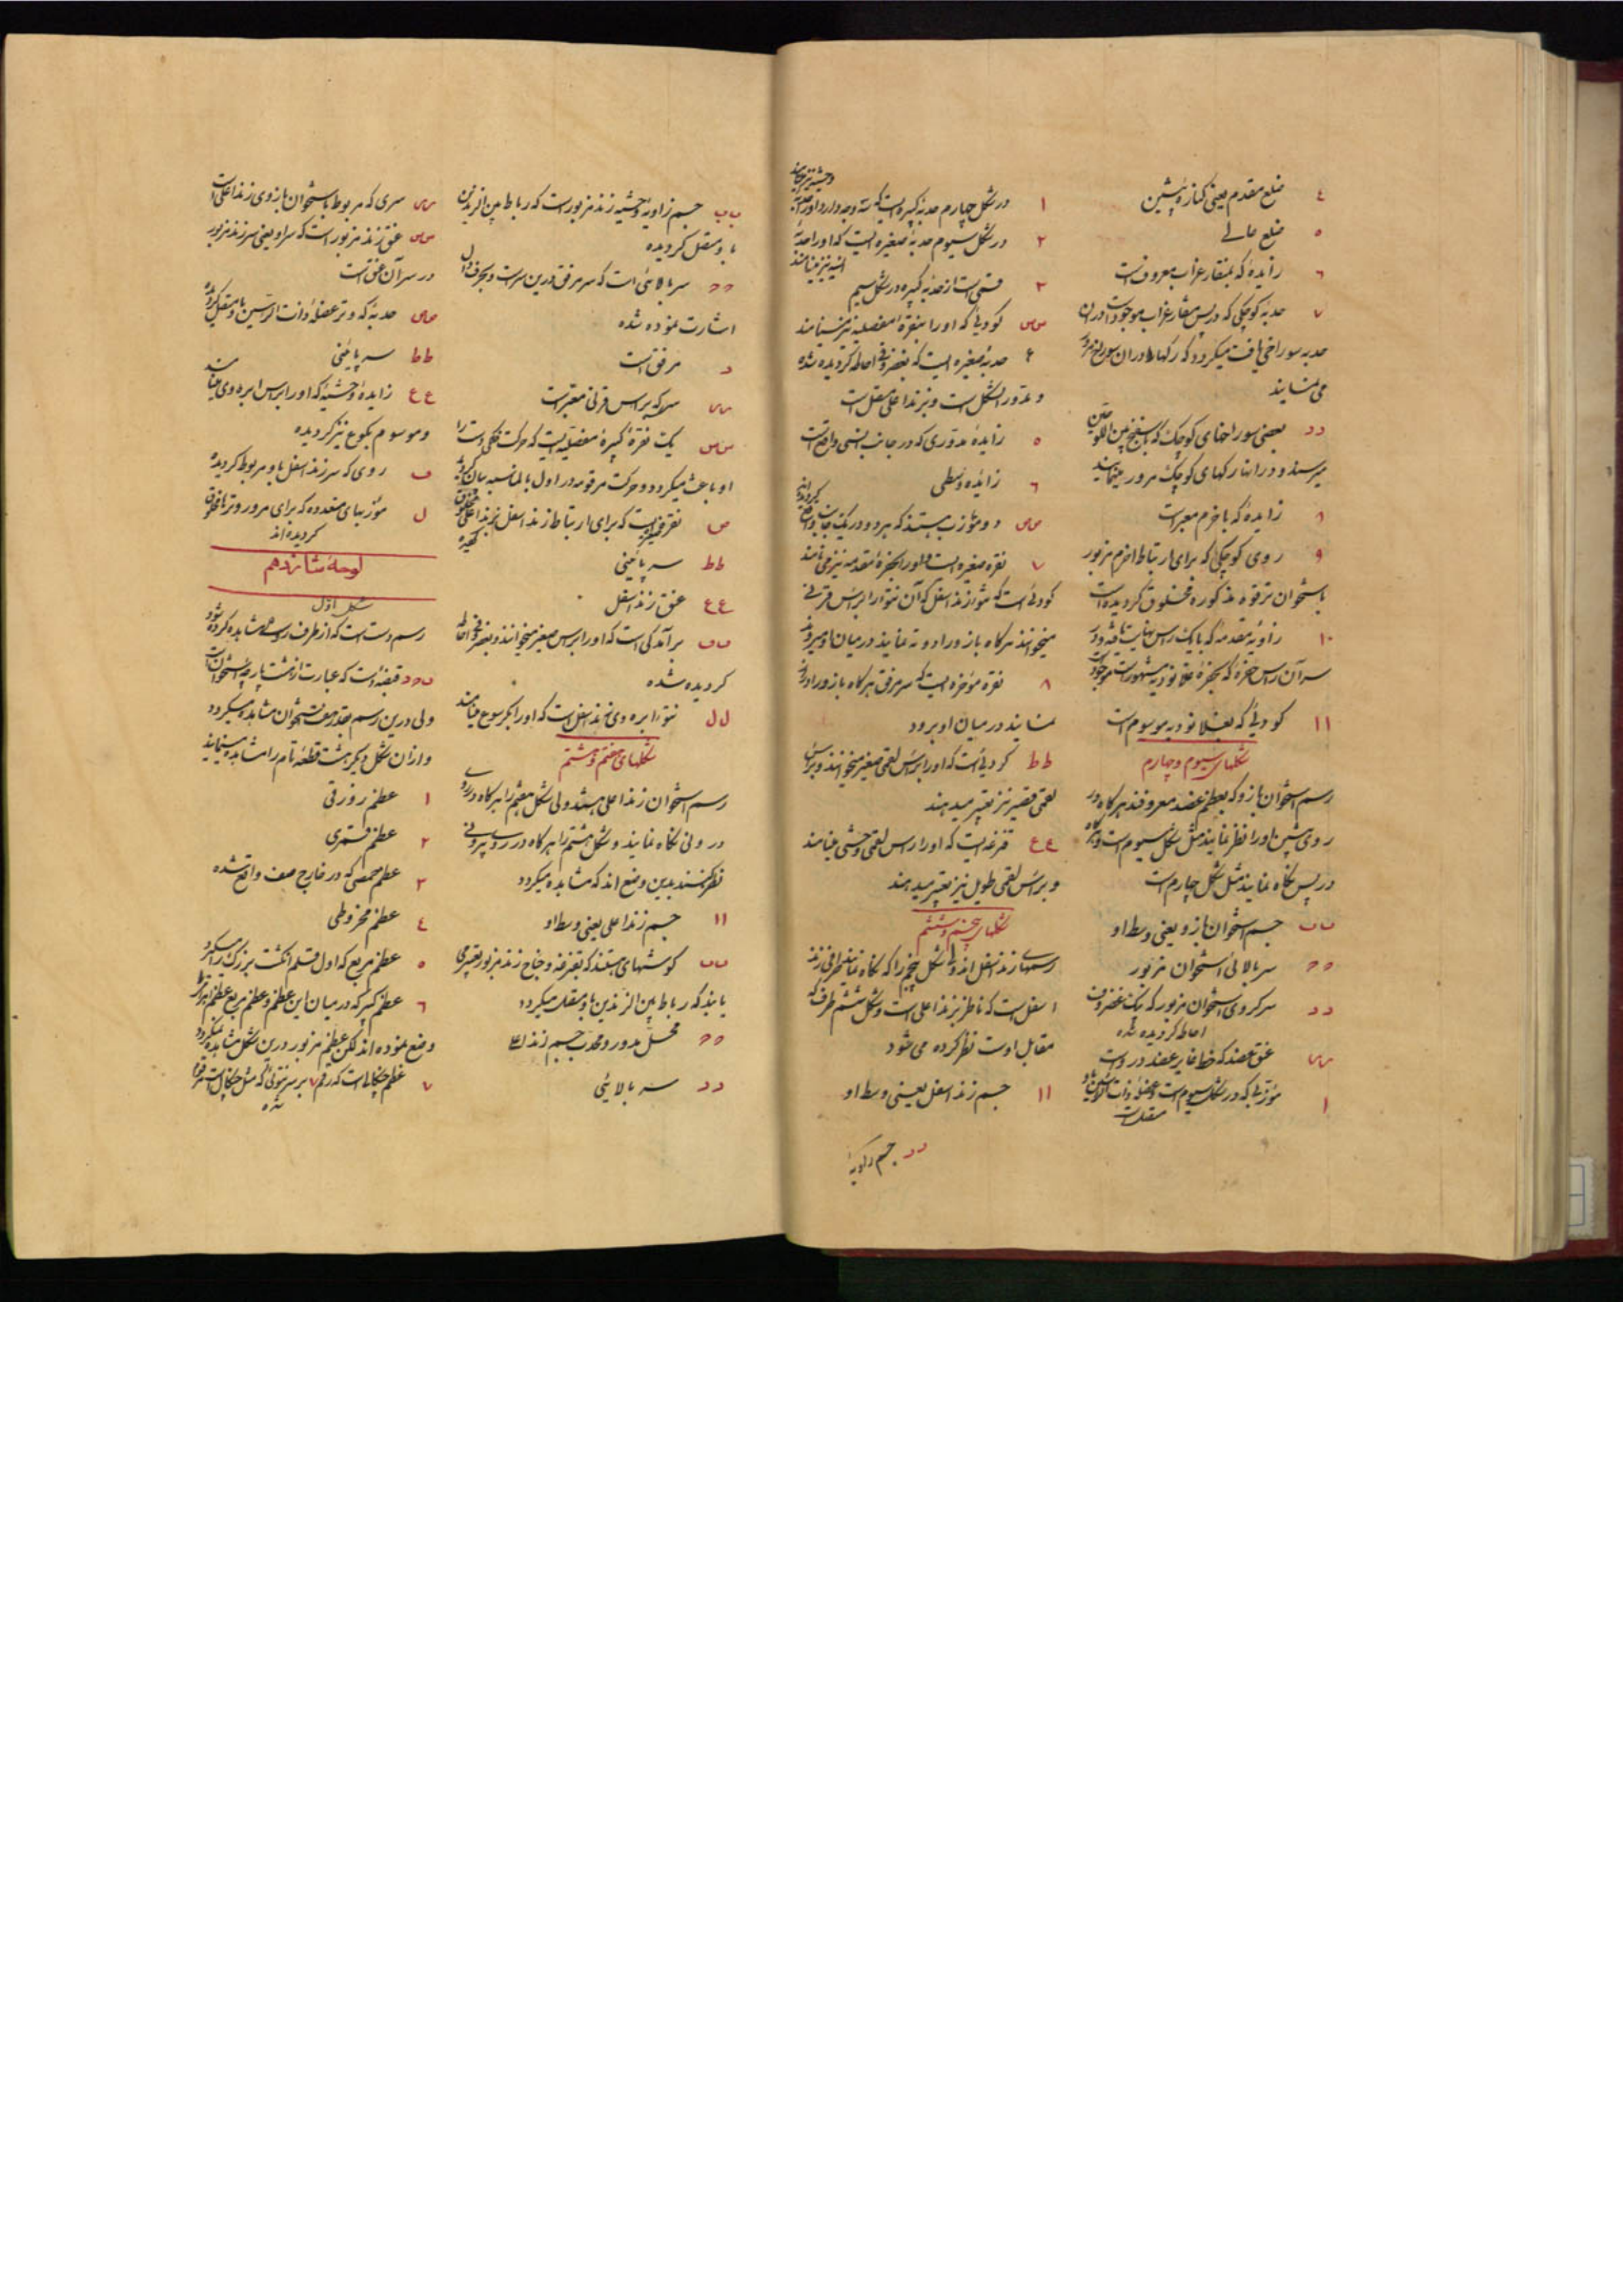 ٤ ضلع مقدم یعنی کنارهٔ پیشین
٥ ضلع عالی
٦ زایدهٔ که بمنقار غراب معروفست
٧ حدبهٔ کوچکی که در پس منقار غراب موجود است و در ان
حدبه سوراخی یافت میکردد که رکها در ان سوراخ مرور
می نمایند
د د بعضی سوراخهای کوچک که
میرسند و در آنها رکهای کوچک مرور مینمایند
٨ زایدهٔ که باخرم معبر است
٩ روی کوچکی که برای ارتباط اخرم مزبور
باستخوان ترقوه مذکوره مخلوق کردیده است
١٠ زاویه مقدمه که بایک راس نهایت یافته و در
سر آن راس حفرهٔ که بحفرهٔ عنقانودیه مشهور است موجود است
١١ کودئی که بعنلانودیه موسوم است
شکلهای سیوم و چهارم
رسم استخوان بازو که بعظم عضد معروفند هرکاه در
روی پیش او را نظر نمایند مثل شکل سیوم است و هرکاه
در پس نکاه نمایند مثل شکل چهارم است
ب ب جسم استخوان بازو یعنی وسط او
ح ح سر بالائی استخوان مزبور
د د سر کروی استخوان مزبور که بیک غضروف
احاطه کردیده شده
س س عنق عضد که خطا غایر عضد در اوست
١ مؤزبی که در شکل سیوم است و عضلهٔ ذات الراسین باو
متصلست
١ در شکل چهارم حدبهٔ کبیره است که سه وجه دارد و او را حدبهٔ
وحشیه نیز میخوانند
٢ در شکل سیوم حدبهٔ صغیره ایست که او را حدبهٔ
انسیه نیز مینامند
٣ قسمی است از حدبهٔ کبیره در شکل سیم
س س کودئی که او را بنقرهٔ مفصلیه نیز مینامند
٤ حدبهٔ صغیره ایست که بغضروفی احاطه کردیده شده
و مدور الشکل است و بزند اعلی متصل است
٥ زایدهٔ مدوری که در جانب انسی واقع است
٦ زایده وسطی
ص ص دو مؤزب هستند که هر دو در یک جانب واقع
کردیده اند
٧ نقره صغیره ایست و او را بحفرهٔ مقدمه نیز می نامند
کودئی است که نتو از زند اسفل که آن نتو را براس قرنی
میخوانند هرکاه بازو را دو ته نمایند در میان او میرود
٨ نقره مؤخره ایست که سر مرفق هرکاه بازو را دراز
نمایند در میان او برود
ط ط کردئی است که او را براس لقمی صغیر میخوانند و براس
لقمی قصیر نیز تعبیر میدهند
ع ع قرنه ایست که او را راس لقمی وحشی مینامند
و براس لقمی طویل نیز تعبیر میدهند
شکلهای پنجم و ششم
رسمهای زند اسفل اند ولی شکل پنجم را که نکاه نمایند طرفی از زند
اسفل است که ناظر بزند اعلی است و شکل ششم طرف که
مقابل اوست نظر کرده می شود
ا ا جسم زند اسفل یعنی وسط او
د د جسم زاویهٔ
ب ب جسم زاویهٔ وحشیه زند مزبور است که رباط بین الزندین
باو متصل کردیده
ح ح سر بالائی است که سر مرفق در ین سر است و بحرف دال
اشارت نموده شده
د مرفق است
س س سر که براس قرنی معتبر است
ص ص یک نقرهٔ کبیرهٔ مفصلیه ایست که حرکت فکی دست را
او باعث میکردد و حرکت مرقومه در اول بالمناسبه بیان کردیده
ص نقره ایست که برای ارتباط زند اسفل بزند اعلی مخلوق
کردیده
ط ط سر پائینی
ع ع عنق زند اسفل
ف ف برآمدگی است که او را براس صغیر میخوانند و بغضروفی احاطه
کردیده شده
ل ل نتو ابره وی زند اسفل است که او را بکرسوع مینامند
شکلهای هفتم و هشتم
رسم استخوان زند اعلی هستند ولی شکل هفتم را هرکاه در روی
درونی نکاه نمایند و شکل هشتم را هرکاه در روی بیرونی
نظر کنند بدین وضع اند که مشاهده میکردد
ا ا جسم زند اعلی یعنی وسط او
ب ب کوشهای هستند که بغرفه و جناح زند مزبور تعبیر می
یابند که رباط بین الزندین باو متصل میکردد
ح ح محل مدور و محدب جسم زند اعلی
د د سر بالائی
س س سری که مربوط باستخوان بازوی زند اعلی است
ص ص عنق زند مزبور است که سر او یعنی سر زند مزبور
در سر آن عنق است
ص ص حدبهٔ که وتر عضلهٔ ذات الراسین باو متصل کردیده
ط ط سر پائینی
ع ع زایدهٔ وحشیهٔ که او را براس ابره وی مینامند
و موسوم بکوع نیز کردیده
ف روی که سر زند اسفل باو مربوط کردیده
ل مؤزبهای متعدده که برای مرور وترها مخلوق
کردیده اند
لوحهٔ شانزدهم
شکل اول
رسم دست است که از طرف راسی مشاهده کرده شود
ب ح د قبضهٔ است که عبارت از هشت پارچه استخوان است
ولی درین رسم هفت استخوان مشاهده میکردد
و از ان شکل دیکر هشت قطعهٔ تام را مشاهده مینمایند
١ عظم زورقی
٢ عظم قمری
٣ عظم حمصی که در خارج صف واقع شده
٤ عظم مخروطی
٥ عظم مربع که اول قلم انکشت بزرک را میکیرد
٦ عظم کبیر که در میان این عظم و عظم مربع عظم
وضع نموده اند لکن عظم مزبور درین شکل مشاهده نمیکردد
٧ عظم چنکالی است که رقم ٧ بر سر نتوئی که مثل چنکال است مرقوم
شده